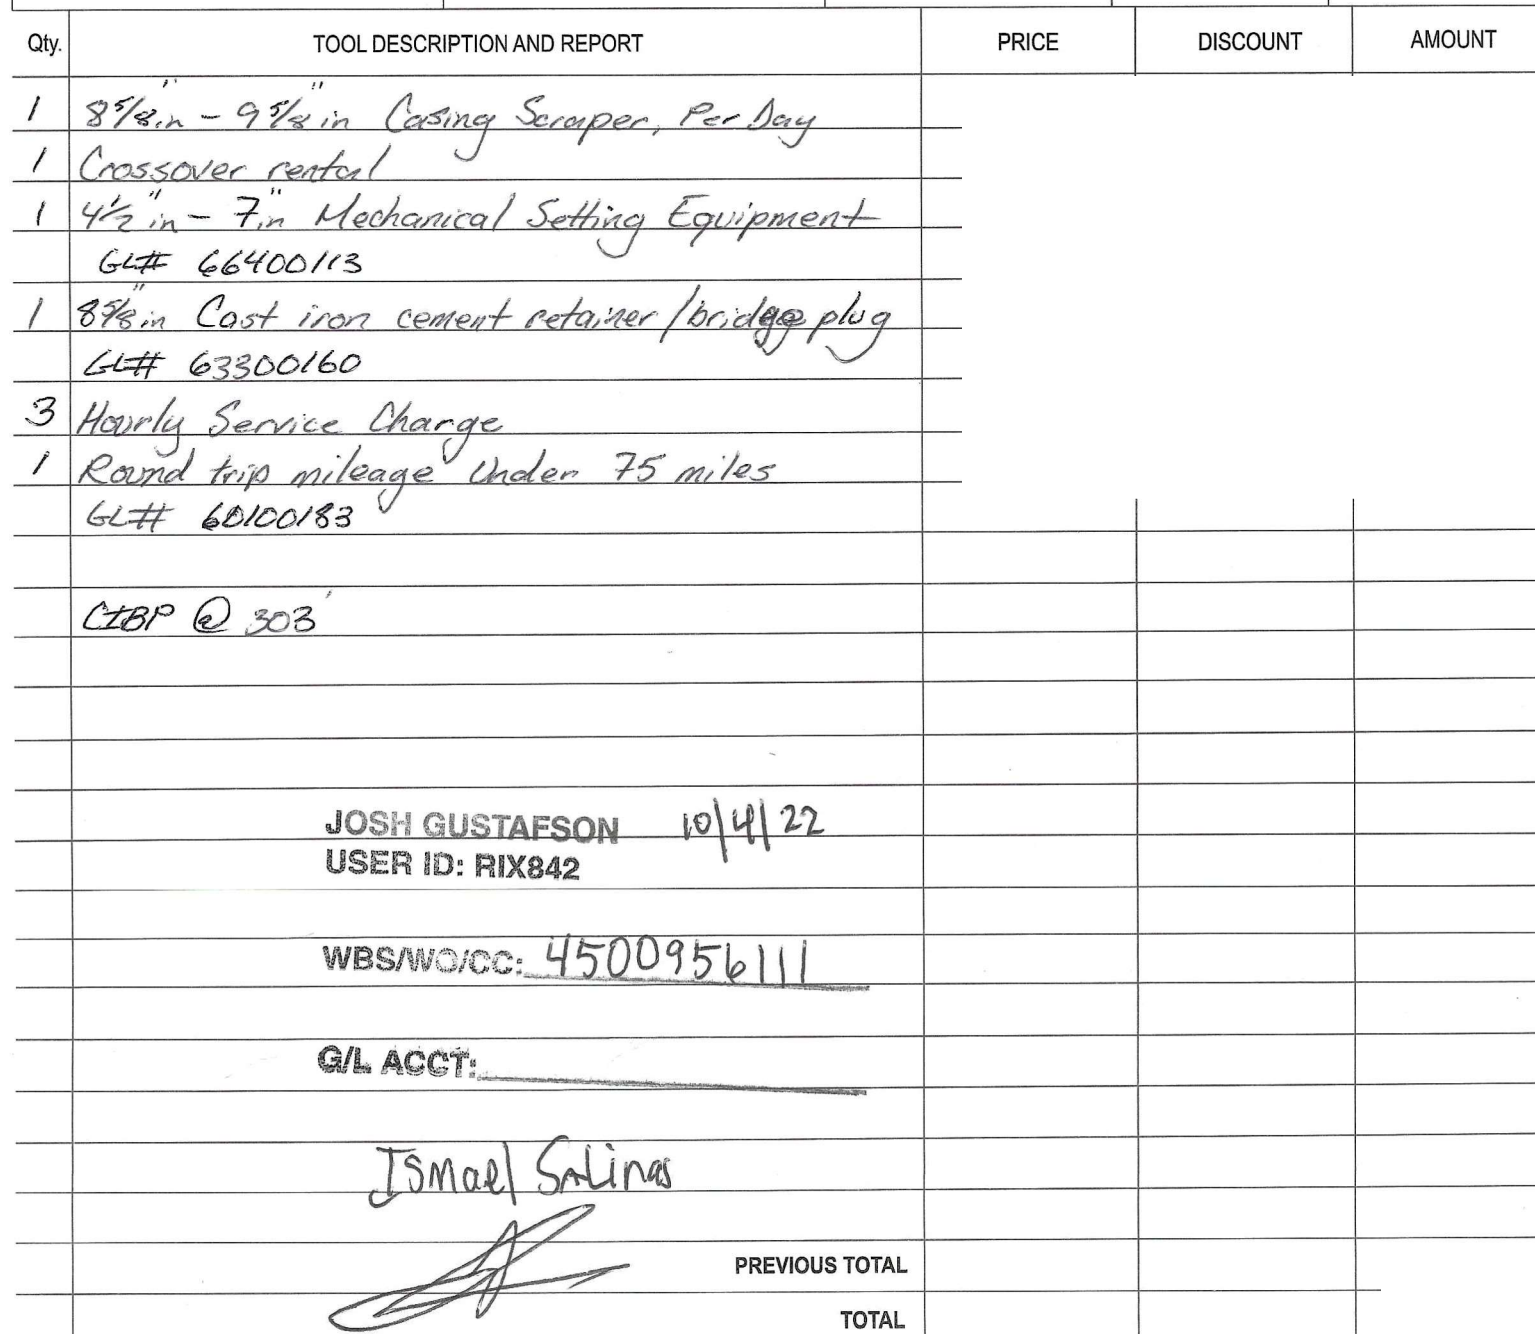 Qty. TOOL DESCRIPTION AND REPORT PRICE DISCOUNT AMOUNT
1 8 5/8"in - 9 5/8"in Casing Scraper, Per Day
1 Crossover rental
1 4 1/2"in - 7"in Mechanical Setting Equipment
GL# 66400113
1 8 5/8"in Cast iron cement retainer/bridge plug
GL# 63300160
3 Hourly Service Charge
1 Round trip mileage Under 75 miles
GL# 60100183
CIBP @ 303'
JOSH GUSTAFSON 10/4/22
USER ID: RIX842
WBS/WO/CC: 4500956111
G/L ACCT:
Ismael Salinas
PREVIOUS TOTAL
TOTAL